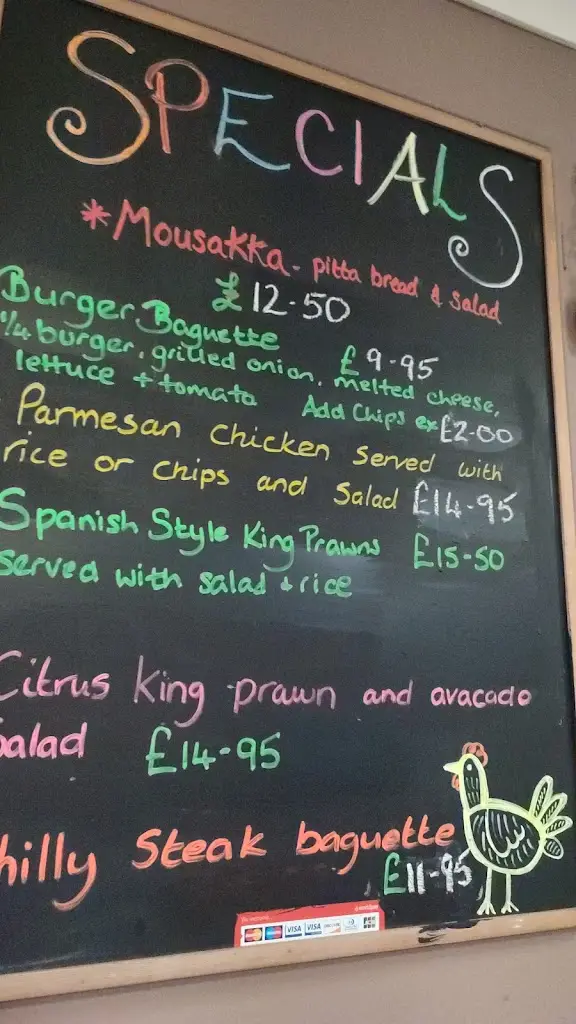 SPECIALS
*Mousakka - pitta bread & salad
£12-50
Burger Baguette £9-95
1/4 burger, grilled onion, melted cheese,
lettuce + tomato Add Chips ex £2-00
Parmesan chicken served with
rice or chips and salad £14-95
Spanish Style King Prawns £15-50
served with salad + rice
Citrus king prawn and avacado
salad £14-95
hilly Steak baguette
£11-95
VISA VISA